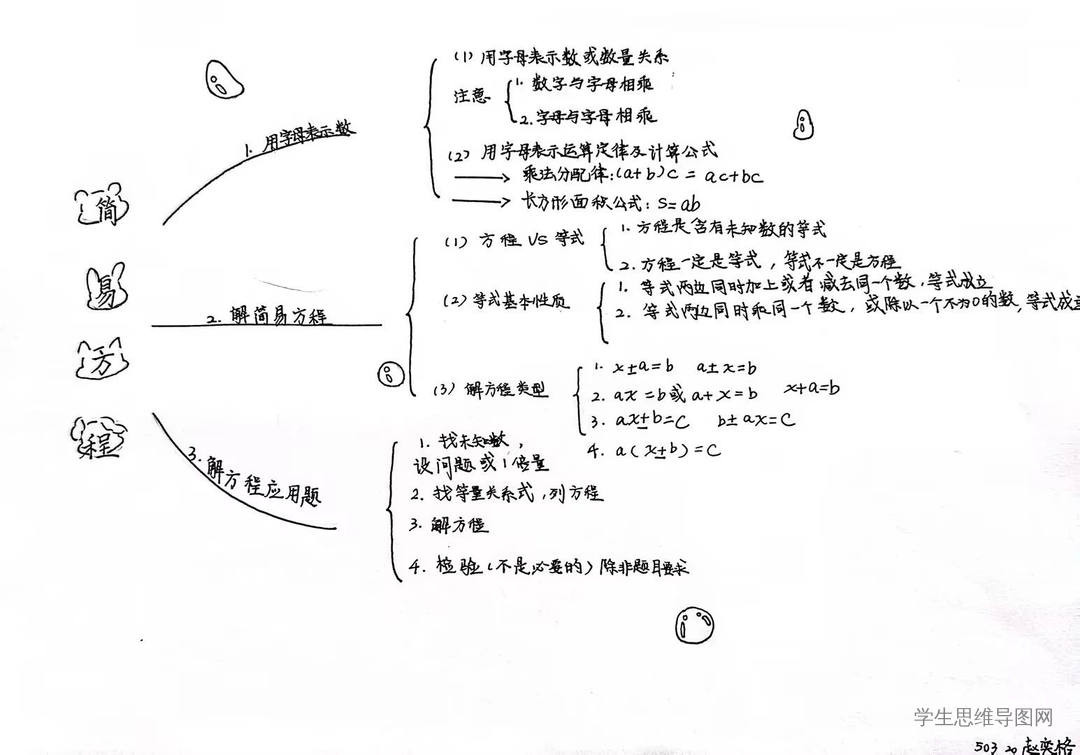 简易方程
1. 用字母表示数
(1) 用字母表示数或数量关系
注意
1. 数字与字母相乘
2. 字母与字母相乘
(2) 用字母表示运算定律及计算公式
→ 乘法分配律:(a+b)c = ac+bc
→ 长方形面积公式: S=ab
2. 解简易方程
(1) 方程 VS 等式
1. 方程是含有未知数的等式
2. 方程一定是等式,等式不一定是方程
(2) 等式基本性质
1. 等式两边同时加上或者减去同一个数,等式成立
2. 等式两边同时乘同一个数,或除以一个不为0的数,等式成立
(3) 解方程类型
1. x±a=b a±x=b
2. ax=b或a+x=b x+a=b
3. ax±b=c b±ax=c
4. a(x±b)=c
3. 解方程应用题
1. 找未知数,
设问题或1倍量
2. 找等量关系式,列方程
3. 解方程
4. 检验(不是必要的)除非题目要求
学生思维导图网
503